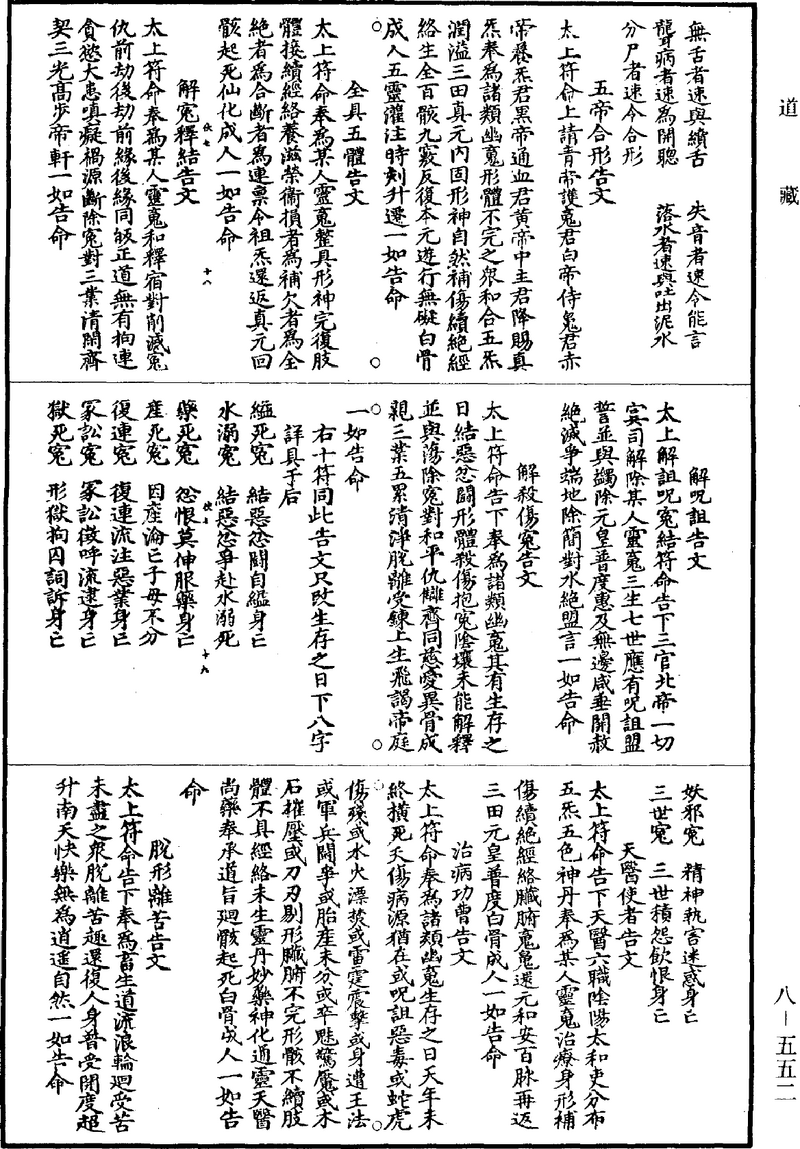 道藏
無舌者速與續舌　失音者速令能言
聾病者速為開聰　落水者速與吐出泥水
分尸者速令合形
五帝合形告文
太上符命上請青帝護䰟君白帝侍䰟君赤
帝養炁君黑帝通血君黄帝中主君降賜真
炁奉為諸類幽䰟形體不完之眾和合五炁
潤溢三田真元內固形神自然補傷續絕經
絡生全百骸九竅反復本元遊行無礙白骨
成人五靈灌注時刻升遷一如告命
全具五體告文
太上符命奉為某人靈䰟整具形神完復肢
體接續經絡養滋榮衞損者為補欠者為全
絕者為合斷者為連稟令祖炁還返真元回
骸起死仙化成人一如告命
十八
解冤釋結告文
太上符命奉為某人靈䰟和釋宿對削滅冤
仇前劫後劫前緣後緣同皈正道無有拘連
貪慾大恚嗔癡禍源斷除冤對三業清閑齊
契三光高步帝軒一如告命
解呪詛告文
太上解詛呪冤結符命告下三官北帝一切
㝠司解除某人靈䰟三生七世應有呪詛盟
誓並與蠲除元皇普度惠及無邊咸垂開赦
絕滅爭端地除簡對水絕盟言一如告命
解殺傷冤告文
太上符命告下奉為諸類幽䰟其有生存之
日結惡忿鬪形體殺傷抱冤陰壤未能解釋
並與蕩除冤對和平仇讎齊同慈愛異骨成
親三業五累清淨脫離受鍊上生飛謁帝庭
一如告命
右十符同此告文只改生存之日下八字
詳具于后
縊死冤　結惡怨鬪自縊身亡
水溺冤　結惡怨爭赴水溺死
十九
藥死冤　怨恨莫伸服藥身亡
產死冤　因產淪亡子母不分
復連冤　復連流注惡業身亡
冢訟冤　冢訟徵呼流逮身亡
獄死冤　形獄拘囚詞訴身亡
妖邪冤　精神執害迷惑身亡
三世冤　三世積怨飲恨身亡
天醫使者告文
太上符命告下天醫六職陰陽太和吏分布
五炁五色神丹奉為某人靈䰟治療身形補
傷續絕經絡臟腑䰟䰟還元和安百脉再返
三田元皇普度白骨成人一如告命
治病功曹告文
太上符命奉為諸類幽䰟生存之日天年未
終橫死夭傷病源猶在或呪詛惡毒或蛇虎
傷殘或水火漂焚或雷霆震擊或身遭王法
或軍兵鬪爭或胎產未分或卒魅驚魘或木
石摧壓或刀刃剔形臟腑不完形骸不續肢
體不具經絡未生靈丹妙藥神化通靈天醫
尚藥奉承道旨廻骸起死白骨成人一如告
命
脫形離苦告文
太上符命告下奉為畜生道流浪輪廻受苦
未盡之眾脫離苦趣還復人身普受開度超
升南天快樂無為逍遥自然一如告命
八－五五二